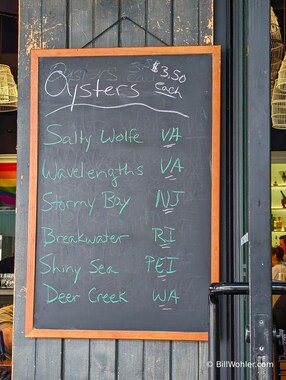 Oysters $3.50 each
Salty Wolfe VA
Wavelengths VA
Stormy Bay NJ
Breakwater RI
Shiny Sea PEI
Deer Creek WA
© BillWohler.com